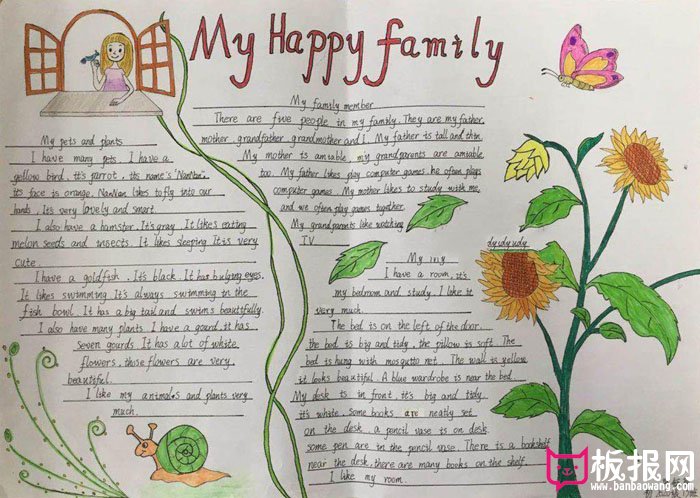 My Happy family
My pets and plants
I have many pets. I have a
yellow bird. it's parrot. its name's "NanNan".
its face is orange. NanNan likes to fly into our
hands. Its very lovely and smart.
I also have a hamster. It's gray. It likes eating
melon seeds and insects. It likes sleeping. It is very
cute.
I have a goldfish. It's black. It has bulging eyes.
It likes swimming. It's always swimming in the
fish bowl. It has a big tail and swims beautifully.
I also have many plants. I have a gourd. it has
seven gourds. It has a lot of white
flowers, those flowers are very
beautiful.
I like my animals and plants very
much.
My family member
There are five people in my family. They are my father,
mother, grandfather, grandmother and I. My father is tall and thin.
My mother is amiable, my grandparents are amiable
too. My father likes play computer games. he often plays
computer games. My mother likes to study with me,
and we often play games together.
My grandparents like watching
TV
My
I have a room, it's
my bedroom and study. I like it
very much.
The bed is on the left of the door.
the bed is big and tidy, the pillow is soft. The
bed is hung with mosquito net. The wall is yellow
it looks beautiful. A blue wardrobe is near the bed.
My desk is in front, it's big and tidy
it's white, some books are neatly set
on the desk. a pencil vase is on desk.
some pen are in the pencil vase. There is a bookshelf
near the desk, there are many books on the shelf.
I like my room.
板报网
www.banbaowang.com